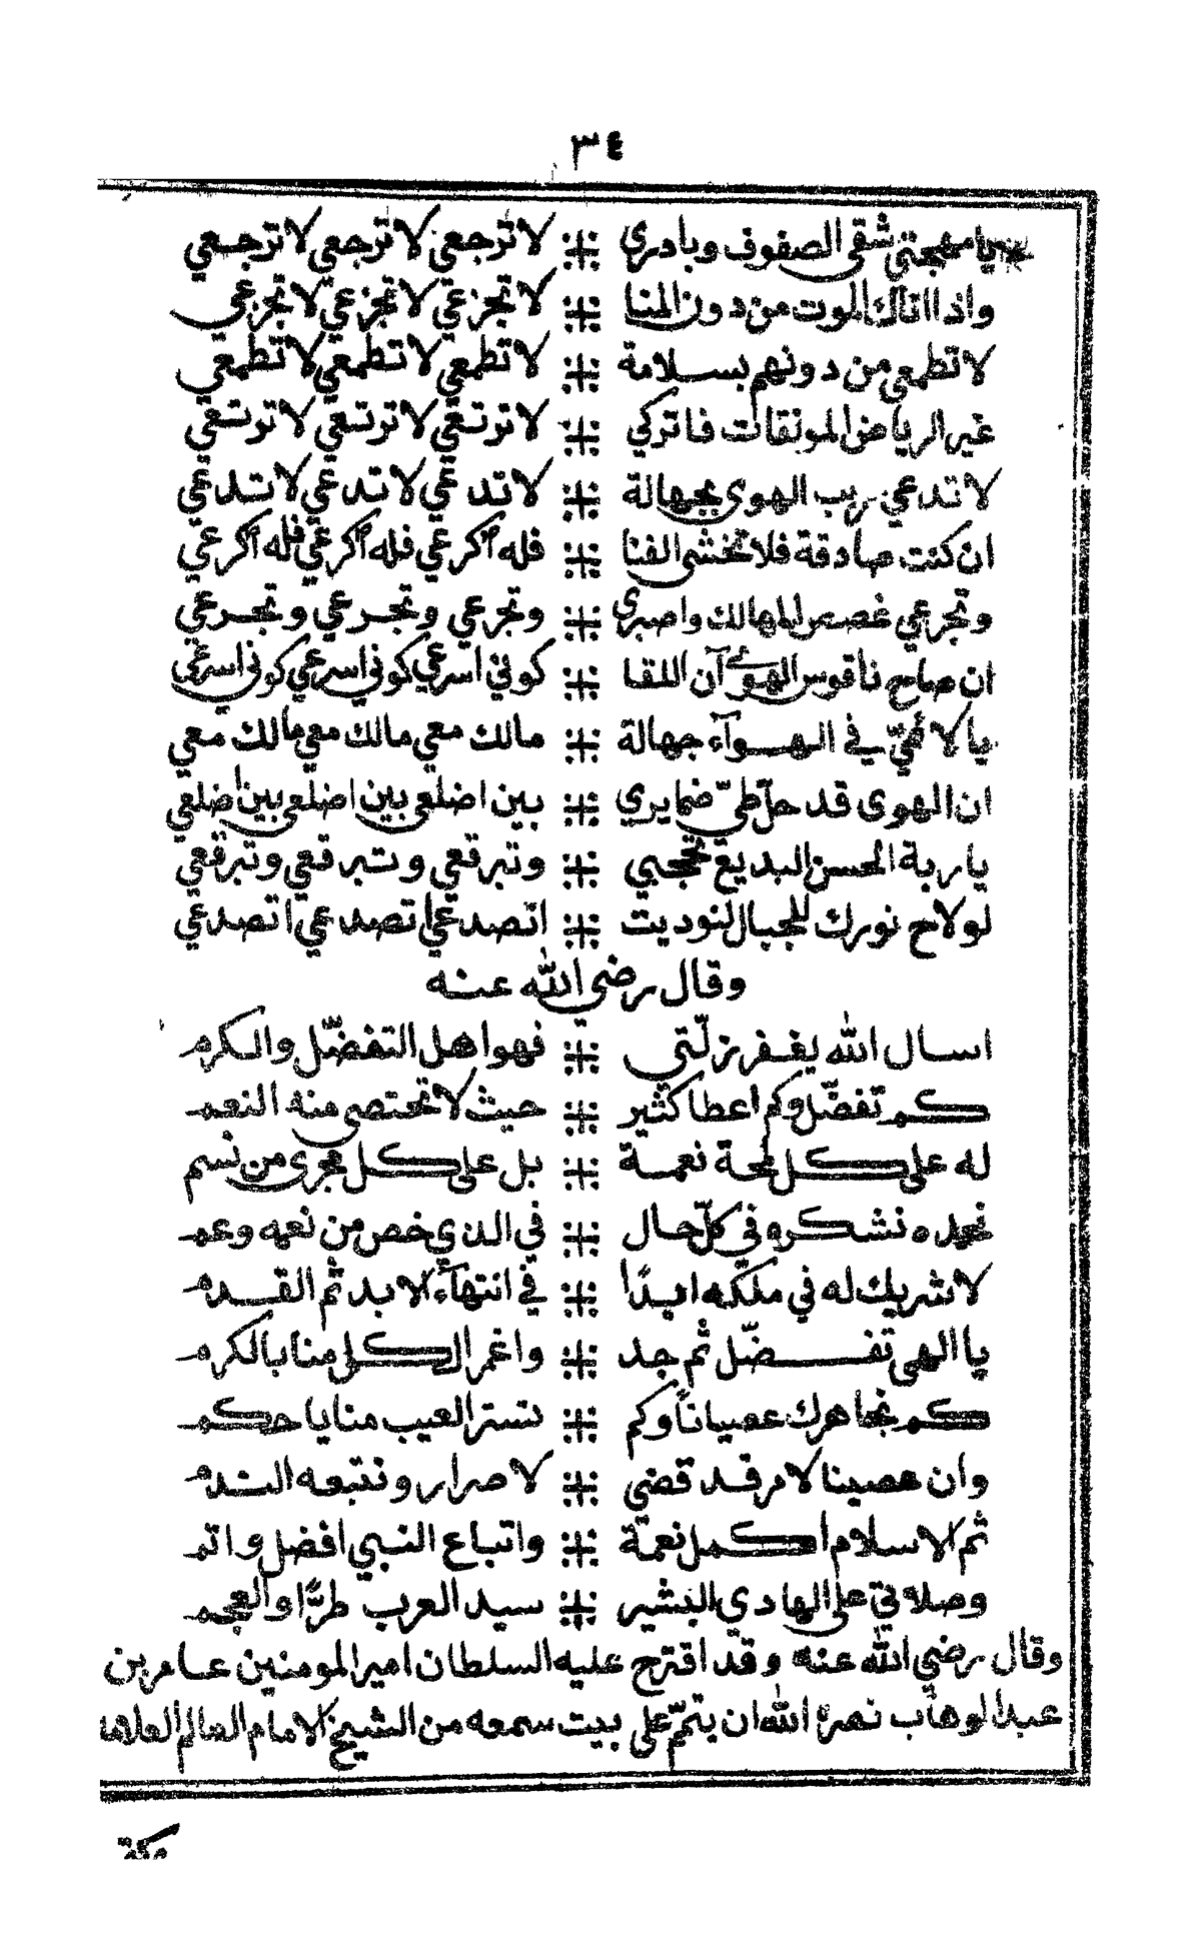 ٣٤
يا مهجتي شقى الصفوف وبادري لا ترجعي لا ترجعي لا ترجعي
واذا اتاك الموت من دون المنا لا تجزعي لا تجزعي لا تجزعي
لا تطمعي من دونهم بسلامة لا تطمعي لا تطمعي لا تطمعي
غير الرياض المونقات فاتركي لا ترتعي لا ترتعي لا ترتعي
لا تدعي ريب الهوى بجهالة لا تدعي لا تدعي لا تدعي
ان كنت صادقة فلا تخشى الفنا فله اكرعي فله اكرعي فله اكرعي
وتجرعي غصص المهالك واصبري وتجرعي وتجرعي وتجرعي
ان صاح ناقوس الهوى آن اللقا كوني اسرعي كوني اسرعي كوني اسرعي
يا لائمي في الهوآء جهالة مالك معي مالك معي مالك معي
ان الهوى قد حلّ طيّ ضمايري بين اضلعي بين اضلعي بين اضلعي
يا ربة الحسن البديع تحجبي وتبرقعي وتبرقعي وتبرقعي
لولاح نورك للجبال لنوديت اتصدعي اتصدعي اتصدعي
وقال رضي الله عنه
اسال الله يغفر زلّتي فهو اهل التفضّل والكرم
كم تفضّل وكم اعطا كثير حيث لا تحتصى منه النعم
له على كل لمحة نعمة بل على كل مجرى من نسم
نحمده نشكره في كلّ حال في الذي خص من نعمه وعم
لا شريك له في ملكه ابدًا في انتهآء الابد ثم القدم
يا الهى تفضّل ثم جد واغمر الكل منا بالكرم
كم نجاهرك عصياناً وكم تستر العيب منا يا حكم
وان عصينا لامر قد قضي لا صرار ونتبعه الندم
ثم الاسلام اكمل نعمة واتباع النبي افضل واتم
وصلاتي على الهادي البشير سيد العرب طرًّا والعجم
وقال رضي الله عنه وقد اقترح عليه السلطان امير المومنين عامر بن
عبد الوهاب نصره الله ان يتمّ على بيت سمعه من الشيخ الامام العالم العلاما